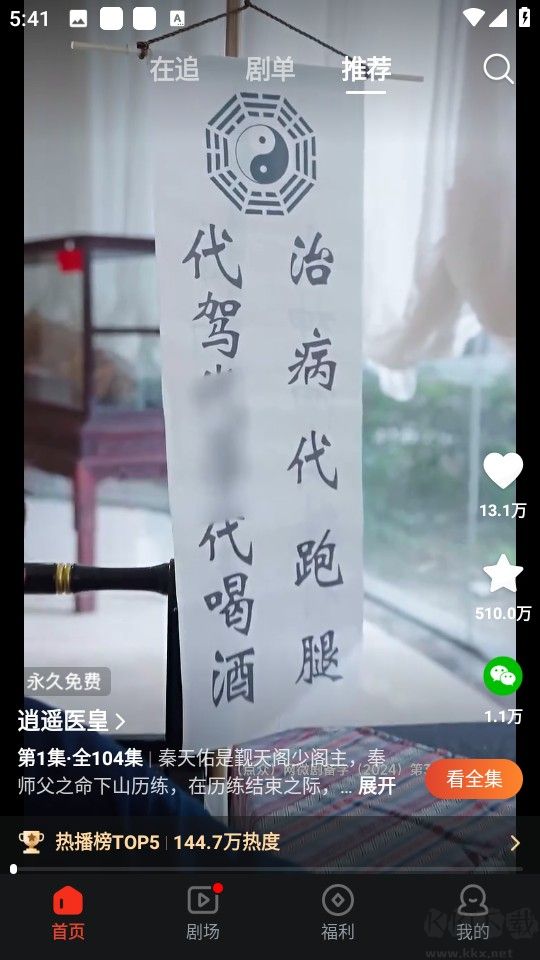 5:41
在追 剧单 推荐
治病代跑腿
代驾
代喝酒
13.1万
510.0万
1.1万
永久免费
逍遥医皇
第1集·全104集 | 秦天佑是觐天阁少阁主，奉
师父之命下山历练，在历练结束之际，... 展开
(点众) 网微剧备字 (2024) 第3
看全集
热播榜TOP5 | 144.7万热度
首页 剧场 福利 我的
www.kkx.net